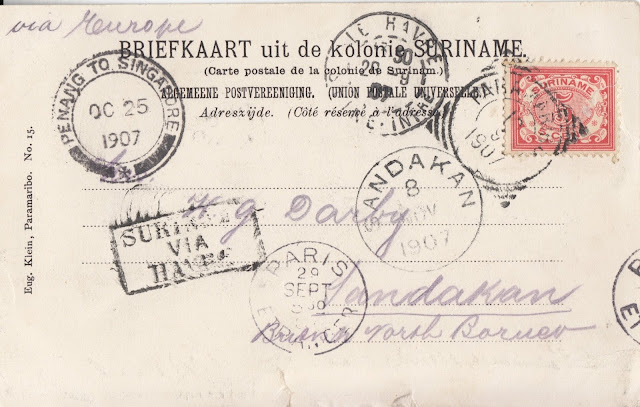 via Europe
BRIEFKAART uit de kolonie SURINAME.
(Carte postale de la colonie de Surinam.)
ALGEMEENE POSTVEREENIGING. (UNION POSTALE UNIVERSELLE.)
Adreszijde. (Côté réservé à l'adresse.)
SURINAME
PENANG TO SINGAPORE
OC 25
1907
LE HAVRE
PARAMARIBO
1907
SANDAKAN
8
NOV
1907
SURINAME
VIA
HAVRE
H. G. Darby
PARIS
29
SEPT
ETRANGER
Sandakan
North Borneo
PARIS
Eug. Klein, Paramaribo. No. 15.